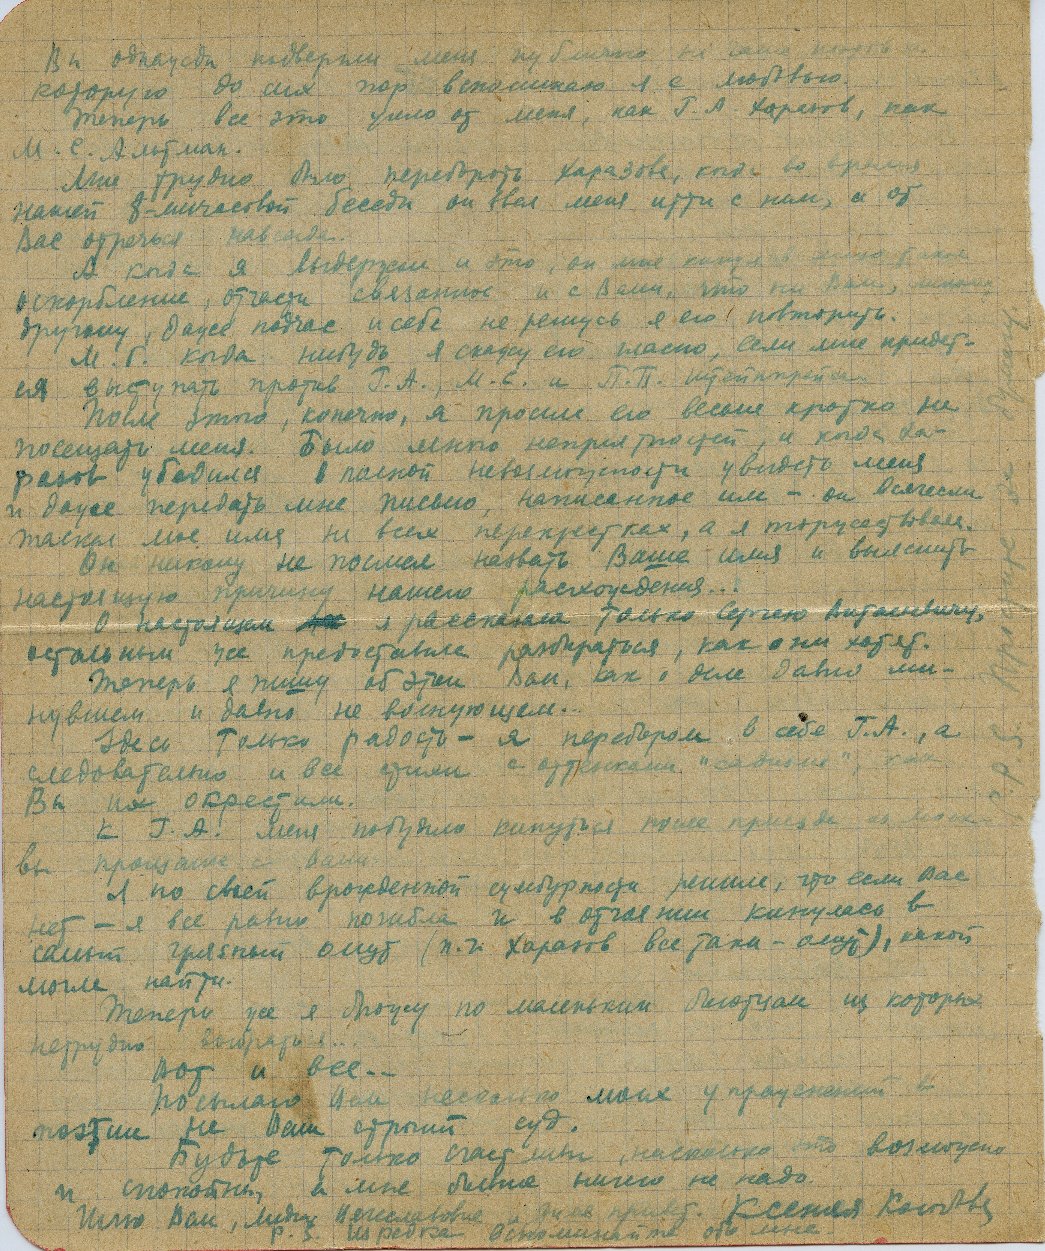 Вы однажды подвергли меня публично
которую до сих пор вспоминаю я с любовью.
Теперь все это ушло от меня, как Г. А Харазов, как
М. С. Альтман.
Мне трудно было перебороть Харазова, когда во время
нашей 8-мичасовой беседы он звал меня итти с ним, а от
Вас отречься навсегда.
А когда я выдержала и это, он мне кинул
оскорбление, отчасти связанное и с Вами, что ни Вам, никому
другому, даже подчас и себе не решусь я его повторить.
М. б. когда нибудь я скажу его гласно, если мне придет-
ся выступать против Г. А., М. С. и П. П.
После этого, конечно, я просила его весьма кротко не
посещать меня. Было много неприятностей, и когда Ха-
разов убедился в полной невозможности увидеть меня
и даже передать мне письмо, написанное им – он всячески
таскал мое имя на всех перекрестках, а я торжествовала.
Он никому не посмел назвать Ваше имя и выяснить
настоящую причину нашего расхождения...
О настоящем я рассказала только Сергею Витальевичу,
остальным же предоставила разбираться, как они хотят.
Теперь я пишу об этом Вам, как о деле давно ми-
нувшем и давно не волнующем...
Здесь только радость – я переборола в себе Г. А., а
следовательно и все стили с оттенками
Вы их окрестили.
К Г. А. меня побудило кинуться после приезда из Моск-
вы прощание с Вами
Я по своей врожденной сумбурности решила, что если Вас
нет – я все равно погибла и в отчаянии кинулась в
самый грязный омут (п. ч. Харазов все таки – омут), какой
могла найти.
Теперь уже я брожу по маленьким болотцам из которых
нетрудно выбраться...
Вот и все...
Посылаю Вам несколько моих упражнений в
поэзии на Ваш строгий суд.
Будьте только счастливы, насколько это возможно
и спокойны, а мне больше ничего не надо.
Шлю Вам, Лидии Вячеславовне и Диме привет. Ксения Колобова
P. S. Изредка вспоминайте обо мне.
P. S. Простите за бумагу.